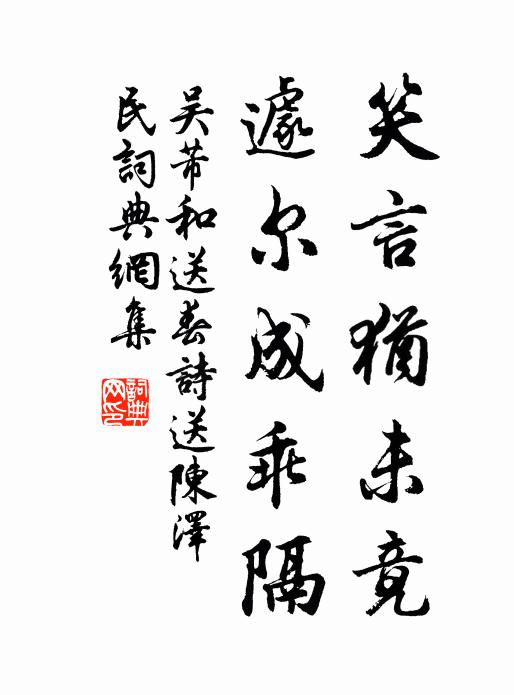 笑言猶未竟
遽尔成乖隔
吴芾和送春詩送陳澤
民詞典網集
詞典
网印